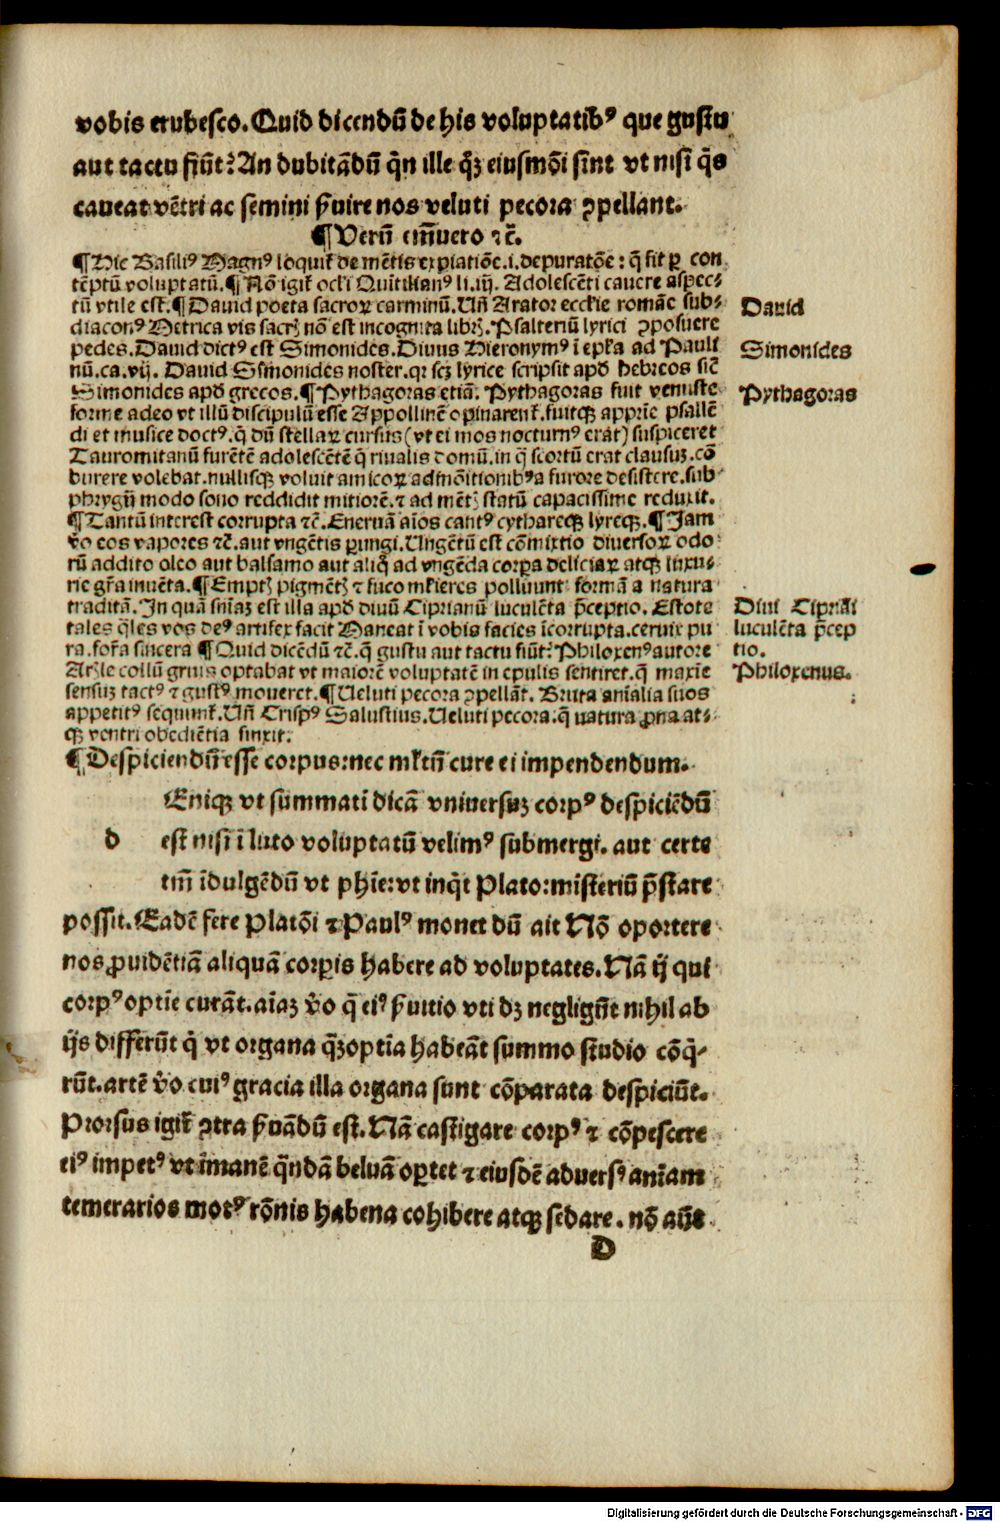 vobis erubesco. Quid dicendū de his voluptatib⁹ que gustu
aut tactu fiūt? An dubitādū q̄n ille q̄ꝫ eiusmōi sint vt nisi q̄s
caueat vētri ac semini ẜuire nos veluti pecora ꝯpellant.
¶ Verū em̄uero ⁊č.
¶ Hic Basili⁹ Magn⁹ loquit̄ de mētis expiatiōe .i. depuratōe: q̄ fit ꝑ con
tēptū voluptatū. ¶ Nō igit̄ ocl̄i Quītilian⁹ li. iij. Adolescēti cauere aspec⸗
tū vtile est. ¶ Dauid poeta sacroꝝ carminū. Vñ Arator eccl̄ie romāe sub⸗
diacon⁹ Metrica vis sacrꝭ nō est incognita librꝭ. Psalteriū lyrici ꝯposuere
pedes. Dauid dict⁹ est Simonides. Diuus Hieronym⁹ ī ep̄la ad Pauli
nū. ca. vij. Dauid Simonides noster. qꝛ scꝫ lyrice scripsit apd̄ hebreos sic̄
Simonides apd̄ grecos. ¶ Pythagoras etiā. Pythagoras fuit venuste
forme adeo vt illū discipulū esse Appollinē opinarent̄. fuitqꝫ apprīe psallē
di et musice doct⁹. q̄ dū stellaꝝ cursus (vt ei mos nocturn⁹ erat) suspiceret
Tauromitanū furētē adolescētē q̄ riualis domū. in q̄ scortū erat clausuꝫ. cō
burere volebat. nullisqꝫ voluit amicoꝝ admōitionib⁹ a furore desistere. sub
phrygij modo sono reddidit mitiorē. ⁊ ad mētꝭ statū capacissime reduxit.
¶ Tantū interest corrupta ⁊č. Eneruā aīos cant⁹ cythareqꝫ lyreqꝫ. ¶ Jam
v̄o eos vapores ⁊č. aut vngētis ꝑungi. Ungētū est cōmixtio diuersoꝝ odo⸗
rū addito oleo aut balsamo aut aliq̄ ad vngēda corꝑa deliciaꝝ atqꝫ luxu⸗
rie gr̄a inuēta. ¶ Emptꝭ pigmētꝭ ⁊ fuco ml̄ieres polluunt formā a natura
traditā. In quā sn̄iaꝫ est illa apd̄ diuū Ciprianū luculēta p̄ceptio. Estote
tales q̄les vos de⁹ artifex facit Maneat ī vobis facies īcorrupta. ceruix pu
ra. for̄a sincera ¶ Quid dicēdū ⁊č. q̄ gustu aut tactu fiūt? Philoxen⁹ autore
Ar̄le collū gruis optabat vt maiorē voluptatē in epulis sentiret. q̄ maxīe
sensuꝫ tact⁹ ⁊ gust⁹ moueret. ¶ Ueluti pecora ꝯpellāt. Bruta aīalia suos
appetit⁹ sequunt̄. Vñ Crisp⁹ Salustius. Ueluti pecora. q̄ natura ꝓna at⸗
qꝫ ventri obediētia finxit.
¶ Despiciendū esse corpus: nec ml̄tū cure ei impendendum.
Eniqꝫ vt summati dicā vniuersuꝫ corp⁹ despiciēdū
d est nisi ī luto voluptatū velim⁹ submergi. aut certe
tm̄ īdulgēdū vt phīe: vt inq̄t Plato: misteriū p̄stare
possit. Eadē fere Platōi ⁊ Paul⁹ monet dū ait Nō oportere
nos ꝓuidētiā aliquā corꝑis habere ad voluptates. Nā ij qui
corp⁹ optīe curāt. aīaꝫ v̄o q̄ ei⁹ ẜuitio vti dꝫ negligūt nihil ab
ijs differūt q̄ vt organa q̄ꝫ optīa habeāt summo studio cōq̄⸗
rūt. artē v̄o cui⁹ gracia illa organa sunt cōparata despiciūt.
Prorsus igit̄ ꝯtra ẜuādū est. Nā castigare corp⁹ ⁊ cōpescere
ei⁹ impet⁹ vt īmanē q̄ndā beluā oꝑtet ⁊ eiusdē aduers⁹ aīam
temerarios mot⁹ rōnis habena cohibere atqꝫ sedare. nō aūt
D
Dauid
Simonides
Pythagoras
Diui Cipriāi
luculēta p̄cep
tio.
Philoxenus.
Digitalisierung gefördert durch die Deutsche Forschungsgemeinschaft - DFG